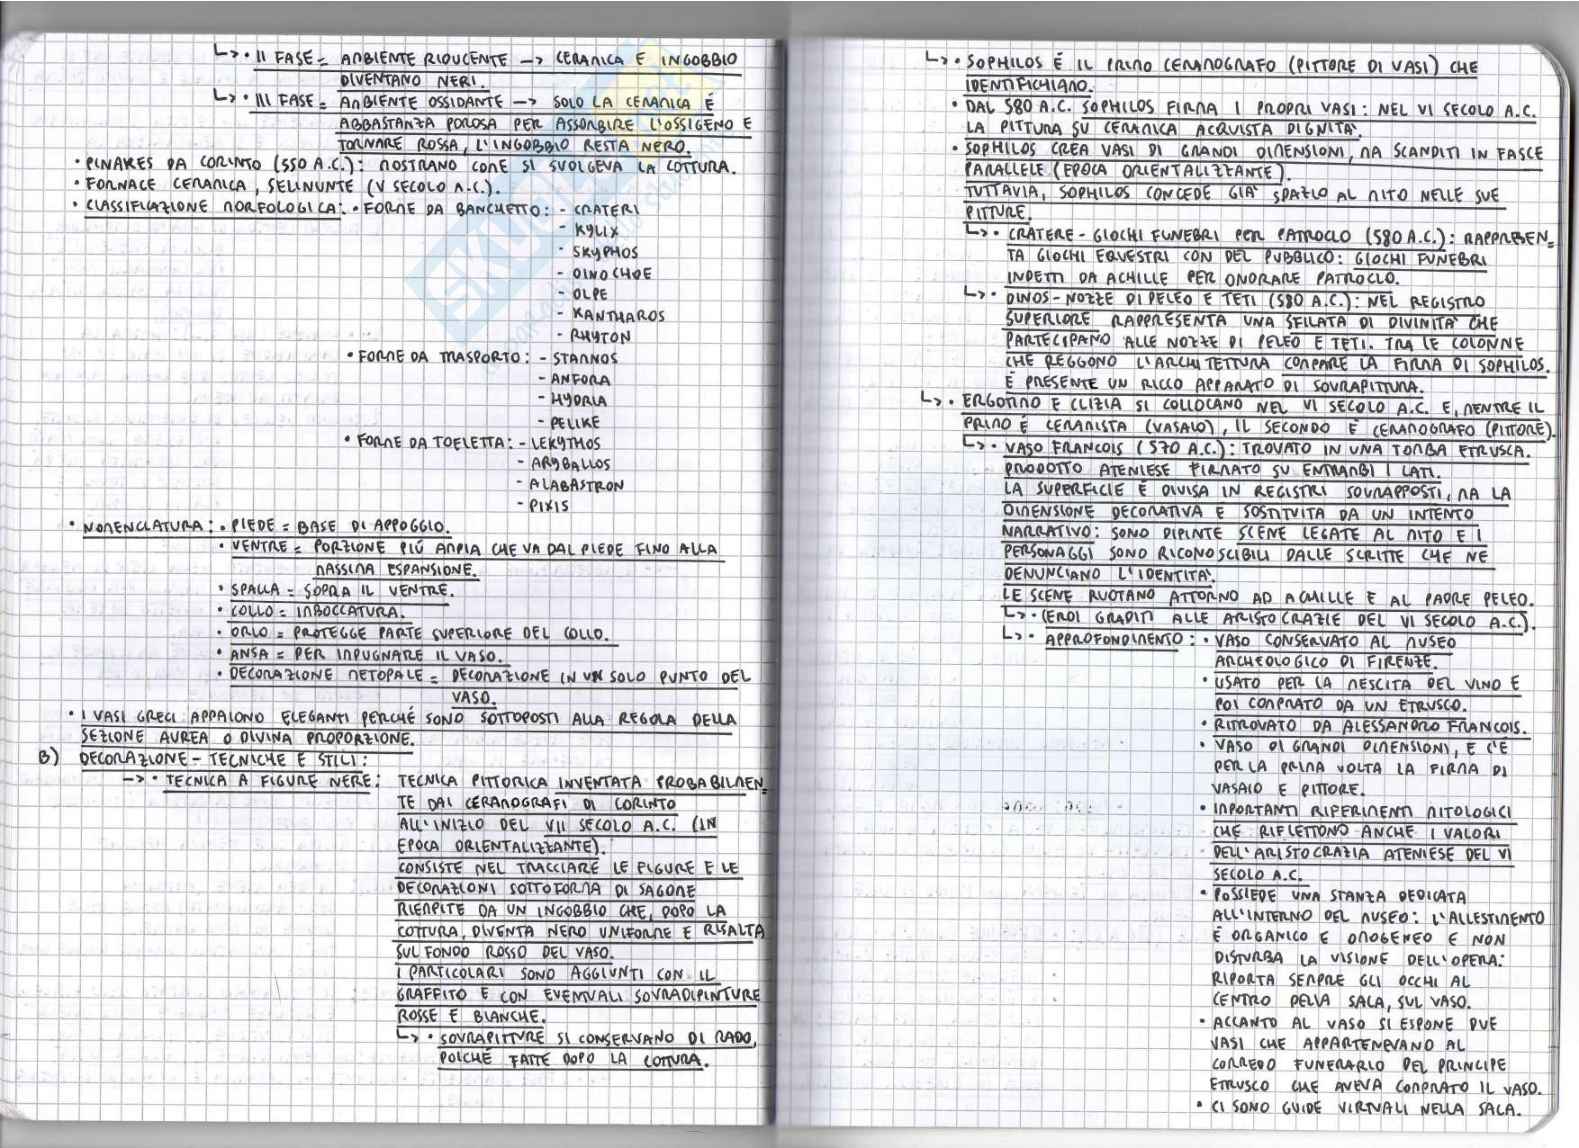 ↳ • II FASE = AMBIENTE RIDUCENTE → CERAMICA E INGOBBIO
DIVENTANO NERI.
↳ • III FASE = AMBIENTE OSSIDANTE → SOLO LA CERAMICA É
ABBASTANZA POROSA PER ASSORBIRE L'OSSIGENO E
TORNARE ROSSA, L'INGOBBIO RESTA NERO.
• PINAKES DA CORINTO (550 A.C.): MOSTRANO COME SI SVOLGEVA LA COTTURA.
• FORNACE CERAMICA, SELINUNTE (V SECOLO A.C.).
• CLASSIFICAZIONE MORFOLOGICA: • FORME DA BANCHETTO: - CRATERI
- KYLIX
- SKYPHOS
- OINOCHOE
- OLPE
- KANTHAROS
- RHYTON
• FORME DA TRASPORTO: - STAMNOS
- ANFORA
- HYDRIA
- PELIKE
• FORME DA TOELETTA: - LEKYTHOS
- ARYBALLOS
- ALABASTRON
- PIXIS
• NOMENCLATURA: • PIEDE = BASE DI APPOGGIO.
• VENTRE = PORZIONE PIÚ AMPIA CHE VA DAL PIEDE FINO ALLA
MASSIMA ESPANSIONE.
• SPALLA = SOPRA IL VENTRE.
• COLLO = IMBOCCATURA.
• ORLO = PROTEGGE PARTE SUPERIORE DEL COLLO.
• ANSA = PER IMPUGNARE IL VASO.
• DECORAZIONE METOPALE = DECORAZIONE IN UN SOLO PUNTO DEL
VASO.
• I VASI GRECI APPAIONO ELEGANTI PERCHÉ SONO SOTTOPOSTI ALLA REGOLA DELLA
SEZIONE AUREA O DIVINA PROPORZIONE.
B) DECORAZIONE - TECNICHE E STILI:
→ • TECNICA A FIGURE NERE: TECNICA PITTORICA INVENTATA PROBABILMEN_
TE DAI CERAMOGRAFI DI CORINTO
ALL'INIZIO DEL VII SECOLO A.C. (IN
EPOCA ORIENTALIZZANTE).
CONSISTE NEL TRACCIARE LE FIGURE E LE
DECORAZIONI SOTTOFORMA DI SAGOME
RIEMPITE DA UN INGOBBIO CHE, DOPO LA
COTTURA, DIVENTA NERO UNIFORME E RISALTA
SUL FONDO ROSSO DEL VASO.
I PARTICOLARI SONO AGGIUNTI CON IL
GRAFFITO E CON EVENTUALI SOVRADIPINTURE
ROSSE E BIANCHE.
↳ • SOVRAPITTURE SI CONSERVANO DI RADO,
POICHÉ FATTE DOPO LA COTTURA.
↳ • SOPHILOS É IL PRIMO CERAMOGRAFO (PITTORE DI VASI) CHE
IDENTIFICHIAMO.
• DAL 580 A.C. SOPHILOS FIRMA I PROPRI VASI: NEL VI SECOLO A.C.
LA PITTURA SU CERAMICA ACQUISTA DIGNITA'.
• SOPHILOS CREA VASI DI GRANDI DIMENSIONI, MA SCANDITI IN FASCE
PARALLELE (EPOCA ORIENTALIZZANTE).
TUTTAVIA, SOPHILOS CONCEDE GIA' SPAZIO AL MITO NELLE SUE
PITTURE.
↳ • CRATERE - GIOCHI FUNEBRI PER PATROCLO (580 A.C.): RAPPRESEN_
TA GIOCHI EQUESTRI CON DEL PUBBLICO: GIOCHI FUNEBRI
INDETTI DA ACHILLE PER ONORARE PATROCLO.
↳ • DINOS - NOZZE DI PELEO E TETI (580 A.C.): NEL REGISTRO
SUPERIORE RAPPRESENTA UNA SFILATA DI DIVINITA' CHE
PARTECIPANO ALLE NOZZE DI PELEO E TETI. TRA LE COLONNE
CHE REGGONO L'ARCHITETTURA COMPARE LA FIRMA DI SOPHILOS.
É PRESENTE UN RICCO APPARATO DI SOVRAPITTURA.
↳ • ERGOTIMO E CLIZIA SI COLLOCANO NEL VI SECOLO A.C. E, MENTRE IL
PRIMO É CERAMISTA (VASAIO), IL SECONDO É CERAMOGRAFO (PITTORE).
↳ • VASO FRANCOIS (570 A.C.): TROVATO IN UNA TOMBA ETRUSCA.
PRODOTTO ATENIESE FIRMATO SU ENTRAMBI I LATI.
LA SUPERFICIE É DIVISA IN REGISTRI SOVRAPPOSTI, MA LA
DIMENSIONE DECORATIVA É SOSTITUITA DA UN INTENTO
NARRATIVO: SONO DIPINTE SCENE LEGATE AL MITO E I
PERSONAGGI SONO RICONOSCIBILI DALLE SCRITTE CHE NE
DENUNCIANO L'IDENTITA'.
LE SCENE RUOTANO ATTORNO AD ACHILLE E AL PADRE PELEO.
↳ • (EROI GRADITI ALLE ARISTOCRAZIE DEL VI SECOLO A.C.).
↳ • APPROFONDIMENTO: • VASO CONSERVATO AL MUSEO
ARCHEOLOGICO DI FIRENZE.
• USATO PER LA MESCITA DEL VINO E
POI COMPRATO DA UN ETRUSCO.
• RITROVATO DA ALESSANDRO FRANCOIS.
• VASO DI GRANDI DIMENSIONI, E C'É
PER LA PRIMA VOLTA LA FIRMA DI
VASAIO E PITTORE.
• IMPORTANTI RIFERIMENTI MITOLOGICI
CHE RIFLETTONO ANCHE I VALORI
DELL'ARISTOCRAZIA ATENIESE DEL VI
SECOLO A.C.
• POSSIEDE UNA STANZA DEDICATA
ALL'INTERNO DEL MUSEO: L'ALLESTIMENTO
É ORGANICO E OMOGENEO E NON
DISTURBA LA VISIONE DELL'OPERA:
RIPORTA SEMPRE GLI OCCHI AL
CENTRO DELLA SALA, SUL VASO.
• ACCANTO AL VASO SI ESPONE DUE
VASI CHE APPARTENEVANO AL
CORREDO FUNERARIO DEL PRINCIPE
ETRUSCO CHE AVEVA COMPRATO IL VASO.
• CI SONO GUIDE VIRTUALI NELLA SALA.